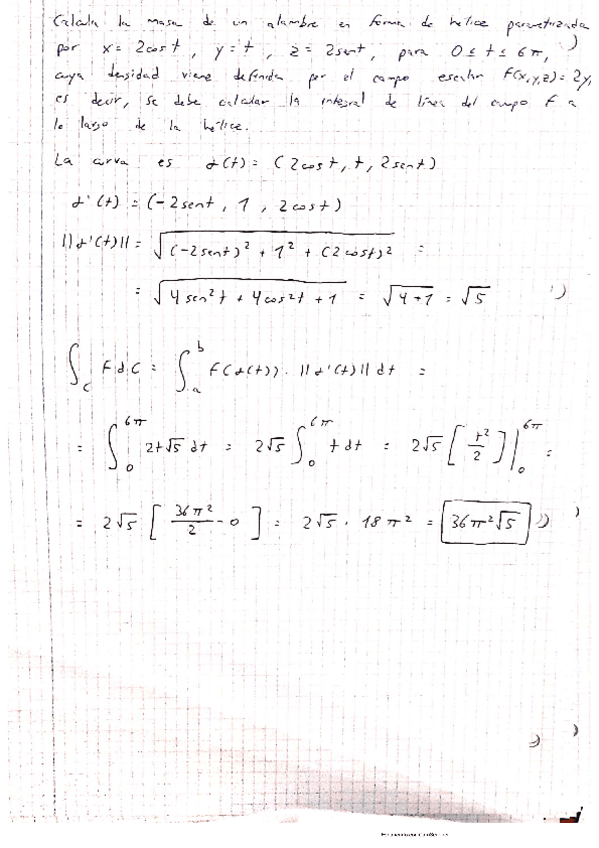 Calcula la masa de un alambre en forma de hélice parametrizada
por x = 2cost, y = t, z = 2sent, para 0 ≤ t ≤ 6π,
cuya densidad viene definida por el campo escalar F(x,y,z) = 2y,
es decir, se debe calcular la integral de línea del campo F a
lo largo de la hélice.
La curva es α(t) = (2cost, t, 2sent)
α'(t) = (-2sent, 1, 2cost)
||α'(t)|| = √((-2sent)² + 1² + (2cost)²) =
= √(4sen²t + 4cos²t + 1) = √(4+1) = √5
∫_C F dC = ∫_a^b F(α(t)) · ||α'(t)|| dt =
= ∫_0^{6π} 2t√5 dt = 2√5 ∫_0^{6π} t dt = 2√5 [t²/2]|_0^{6π} =
= 2√5 [36π²/2 - 0] = 2√5 · 18π² = 36π²√5